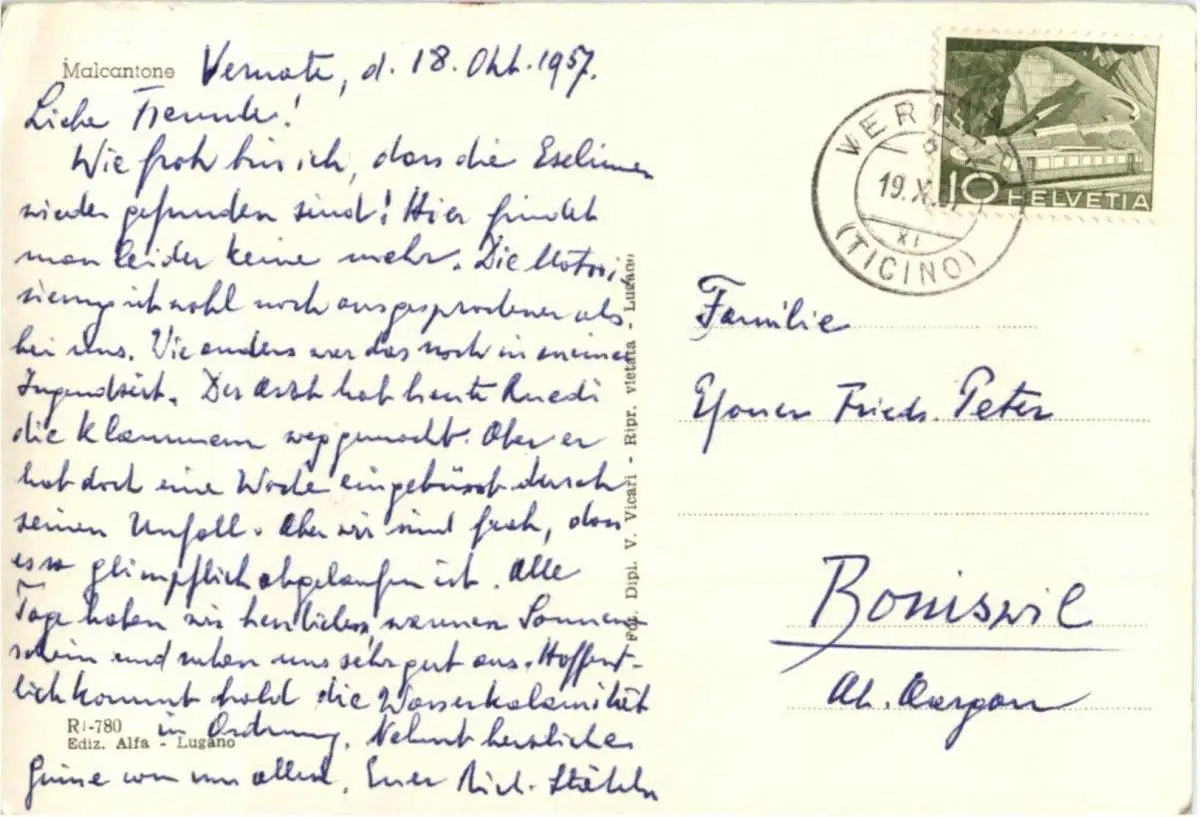 Malcantone
Vernate, d. 18. Okt. 1957.
Liebe Freunde!
Wie froh bin ich, dass die Eselinnen
wieder gefunden sind! Hier findet
man leider keine mehr. Die Motori-
sierung ist wohl noch ausgesprochener als
bei uns. Wie anders war das noch in meiner
Jugendzeit. Der Arzt hat heute Ruedi
die Klammern weggemacht. Aber er
hat doch eine Woche eingebüsst durch
seinen Unfall. Aber wir sind froh, dass
es so glimpflich abgelaufen ist. Alle
Tage haben wir herrlichen, warmen Sonnen-
schein und ruhen uns sehr gut aus. Hoffent-
lich kommt bald die Wasserkalamität
in Ordnung. Nehmt herzliche
Grüsse von uns allen. Euer Rich.
R1-780
Ediz. Alfa - Lugano
Fot. Dipl. V. Vicari - Ripr. vietata - Lugano
VERNATE
19.X.
XI
(TICINO)
10 HELVETIA
Familie
Fried. Peter
Boniswil
Aargau